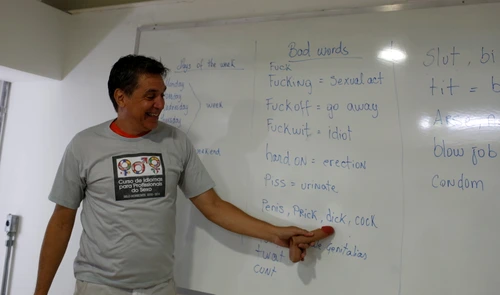 Days of the week
Monday
week
weekend
Bad words
Fuck
Fucking = Sexual act
Fuck off = go away
Fuckwit = Idiot
hand on = erection
Piss = urinate
Penis, Prick, dick, cock
= Genitalias
twat
Cont
Slut, bi
tit = b
blow job
Condom
Curso de Idiomas
para Profissionais
do Sexo